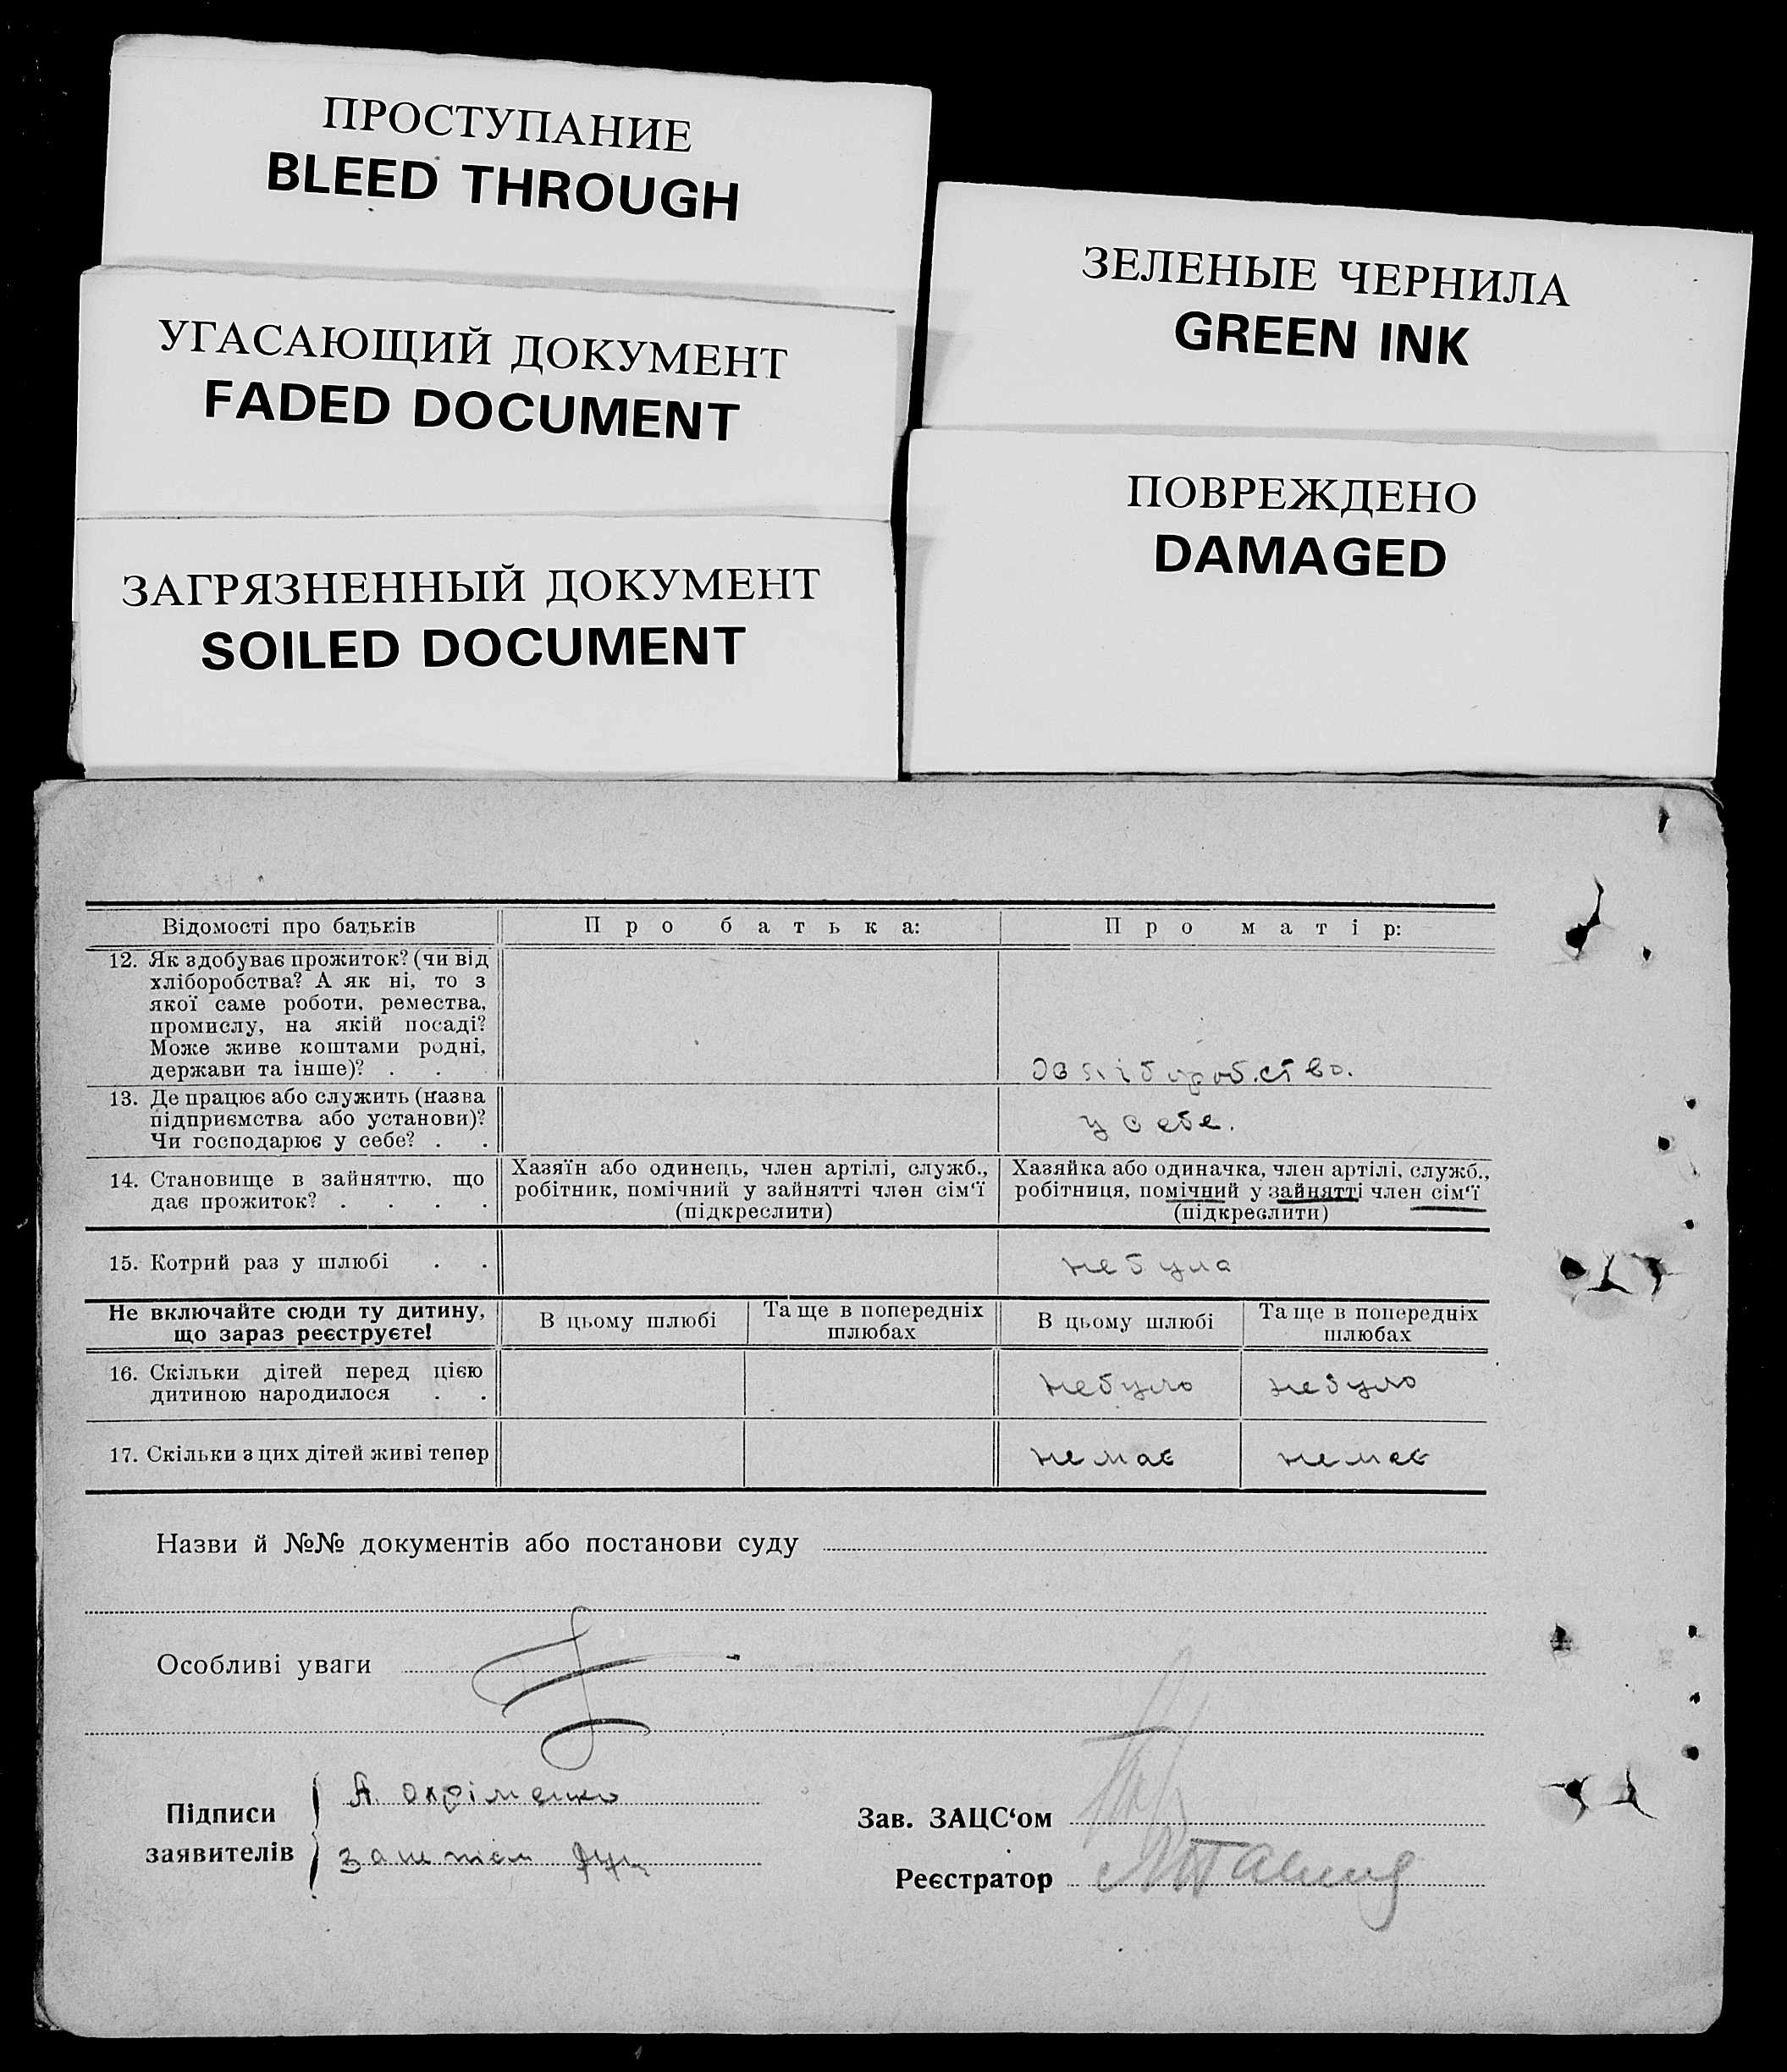 ПРОСТУПАНИЕ
BLEED THROUGH
ЗЕЛЕНЫЕ ЧЕРНИЛА
GREEN INK
УГАСАЮЩИЙ ДОКУМЕНТ
FADED DOCUMENT
ПОВРЕЖДЕНО
DAMAGED
ЗАГРЯЗНЕННЫЙ ДОКУМЕНТ
SOILED DOCUMENT
Відомості про батьків
Про батька:
Про матір:
12. Як здобуває прожиток? (чи від
хліборобства? А як ні, то з
якої саме роботи, ремества,
промислу, на якій посаді?
Може живе коштами родні,
держави та інше)? . .
хліборобство.
13. Де працює або служить (назва
підприємства або установи)?
Чи господарює у себе? . .
у себе.
14. Становище в зайняттю, що
дає прожиток? . . . .
Хазяїн або одинець, член артілі, служб.,
робітник, помічний у зайнятті член сім‘ї
(підкреслити)
Хазяйка або одиначка, член артілі, служб.,
робітниця, помічний у зайнятті член сім‘ї
(підкреслити)
15. Котрий раз у шлюбі . .
не була
Не включайте сюди ту дитину,
що зараз реєструєте!
В цьому шлюбі
Та ще в попередніх
шлюбах
В цьому шлюбі
Та ще в попередніх
шлюбах
16. Скільки дітей перед цією
дитиною народилося . .
не було
не було
17. Скільки з цих дітей живі тепер
немає
немає
Назви й №№ документів або постанови суду
Особливі уваги
Підписи
заявителів
А. Охріменко
Зав. ЗАЦС‘ом
Реєстратор